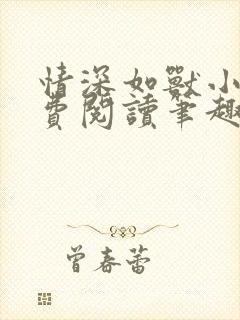 情深如獸小
費閱讀筆趣
曾春蕾